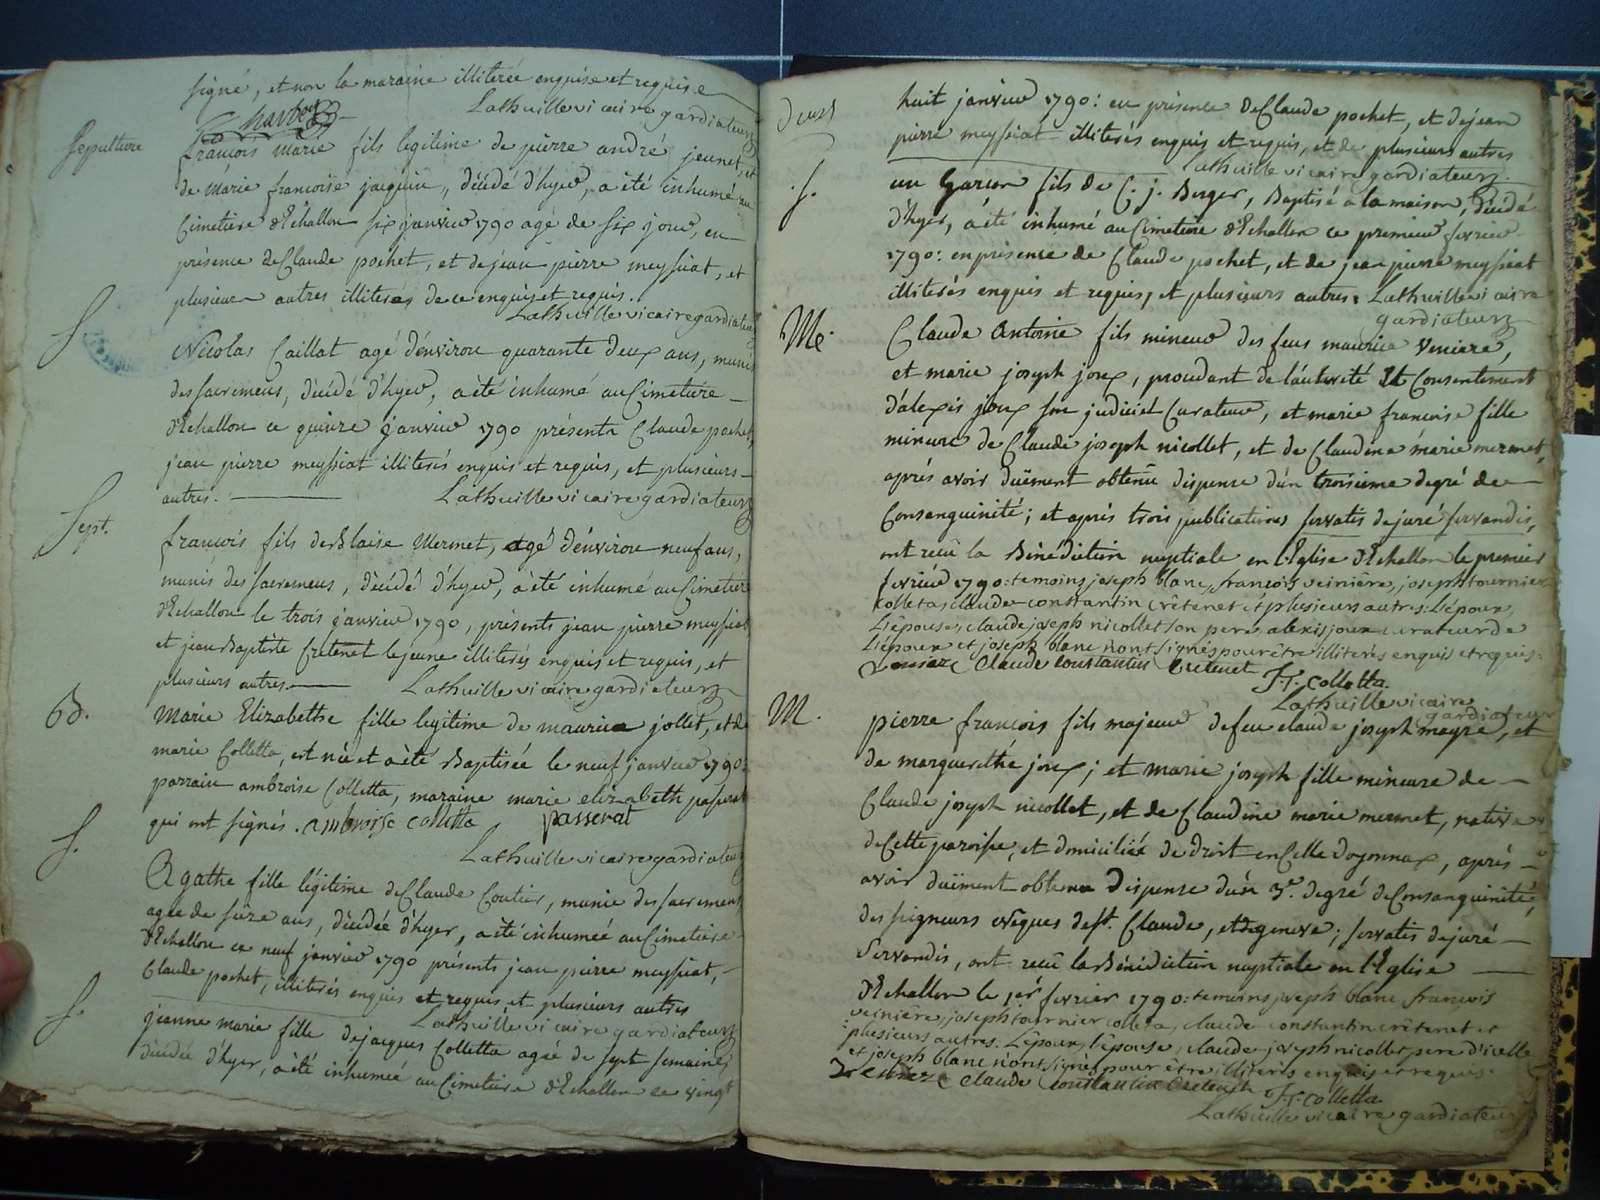 signé, et non la maraine illiterée enquise et requise
Lathuille vicaire gardiateur
Sepulture
françois marie fils legitime de pierre andré jeunet, et
de marie françoise jacquin, décédé d'hyer, a été inhumé au
Cimetiere d'Echallon six janvier 1790 agé de six jour, en
présence de Claude pochet, et de jean pierre meyssiat, et
plusieur autres illiterés de ce enquis et requis.
Lathuille vicaire gardiateur
S.
Nicolas Caillat agé d'environ quarante deux ans, muni
des sacremens, décédé d'hyer, a été inhumé au Cimetiere
d'Echallon ce quinze janvier 1790 présents Claude pochet,
jean pierre meyssiat illiterés enquis et requis, et plusieurs
autres. Lathuille vicaire gardiateur
Sept.
françois fils de Blaise Mermet, agé d'environ neuf ans,
munis des sacremens, décédé d'hyer, a été inhumé au Cimetiere
d'Echallon le trois janvier 1790, présents jean pierre meyssiat
et jean Baptiste Cretenet le jeune illiterés enquis et requis, et
plusieurs autres. Lathuille vicaire gardiateur
Bd.
Marie Elizabethe fille legitime de maurice jollet, et de
marie Colletta, est née et a été Baptisée le neuf janvier 1790:
parrain ambroise Colletta, maraine marie elizabeth passerat
qui ont signés. ambroise colletta passerat
Lathuille vicaire gardiateur
S.
Agathe fille légitime de Claude Coutier, munie des sacremens
agée de seize ans, décédée d'hyer, a été inhumée au Cimetiere
d'Echallon ce neuf janvier 1790 présents jean pierre meyssiat,
Claude pochet, illiterés enquis et requis et plusieurs autres
Lathuille vicaire gardiateur
S.
jeanne marie fille de jacques Colletta agée de sept semaines
décédée d'hyer, a été inhumée au Cimetiere d'Echallon ce vingt
huit janvier 1790: en présence de Claude pochet, et de jean
pierre meyssiat illiterés enquis et requis, et de plusieurs autres
Lathuille vicaire gardiateur
S.
un Garçon fils de C. j. Berger, Baptisé a la maison, décédé
d'hyer, a été inhumé au Cimetiere d'Echallon ce premier fevrier
1790: en présence de Claude pochet, et de jean pierre meyssiat
illiterés enquis et requis, et plusieurs autres. Lathuille vicaire
gardiateur
Me.
Claude Antoine fils mineur des feus maurice Veniere,
et marie joseph joux, procedant de l'autorité et Consentement
d'alexis joux son judiciel Curateur, et marie françoise fille
mineure de Claude joseph nicollet, et de Claudine marie mermet,
aprés avoir düement obtenu dispense d'un troisieme degré de
Consanguinité; et aprés trois publications servatis de jure servandis,
ont reçû la Bénédiction nuptiale en l'Eglise d'Echallon le premier
fevrier 1790: temoins joseph blanc, françois veiniere, joseph tournier
colleta, claude constantin crêtenet et plusieurs autres: L'époux,
L'épouse, claude joseph nicollet son pere, alexis joux curateur de
L'époux et joseph blanc n'ont signés pour être illiterés enquis et requis:
Claude Constantin Cretenet
J. T. Colletta.
Lathuille vicaire
gardiateur
M.
pierre françois fils majeur de feu claude joseph mayre, et
de marguerithe joux; et marie joseph fille mineure de
Claude joseph nicollet, et de Claudine marie mermet, native
de Cette paroisse, et domiciliée de Droit en Celle d'oyonnax, aprés
avoir düement obtenu Dispense d'un 3e. degré de Consanguinité,
des seigneurs evêques de st. Claude, et de geneve; servatis de jure
Servandis, ont reçû la Bénédiction nuptiale en l'Eglise
d'Echallon le 1er fevrier 1790: temoins joseph blanc françois
veiniere, joseph tournier colleta, claude constantin crêtenet et
plusieurs autres. L'époux, l'épouse, claude joseph nicollet pere d'icelle
et joseph blanc n'ont signés pour être illiterés enquis et requis.
Claude Constantin Cretenet
J. T. Colletta.
Lathuille vicaire gardiateur